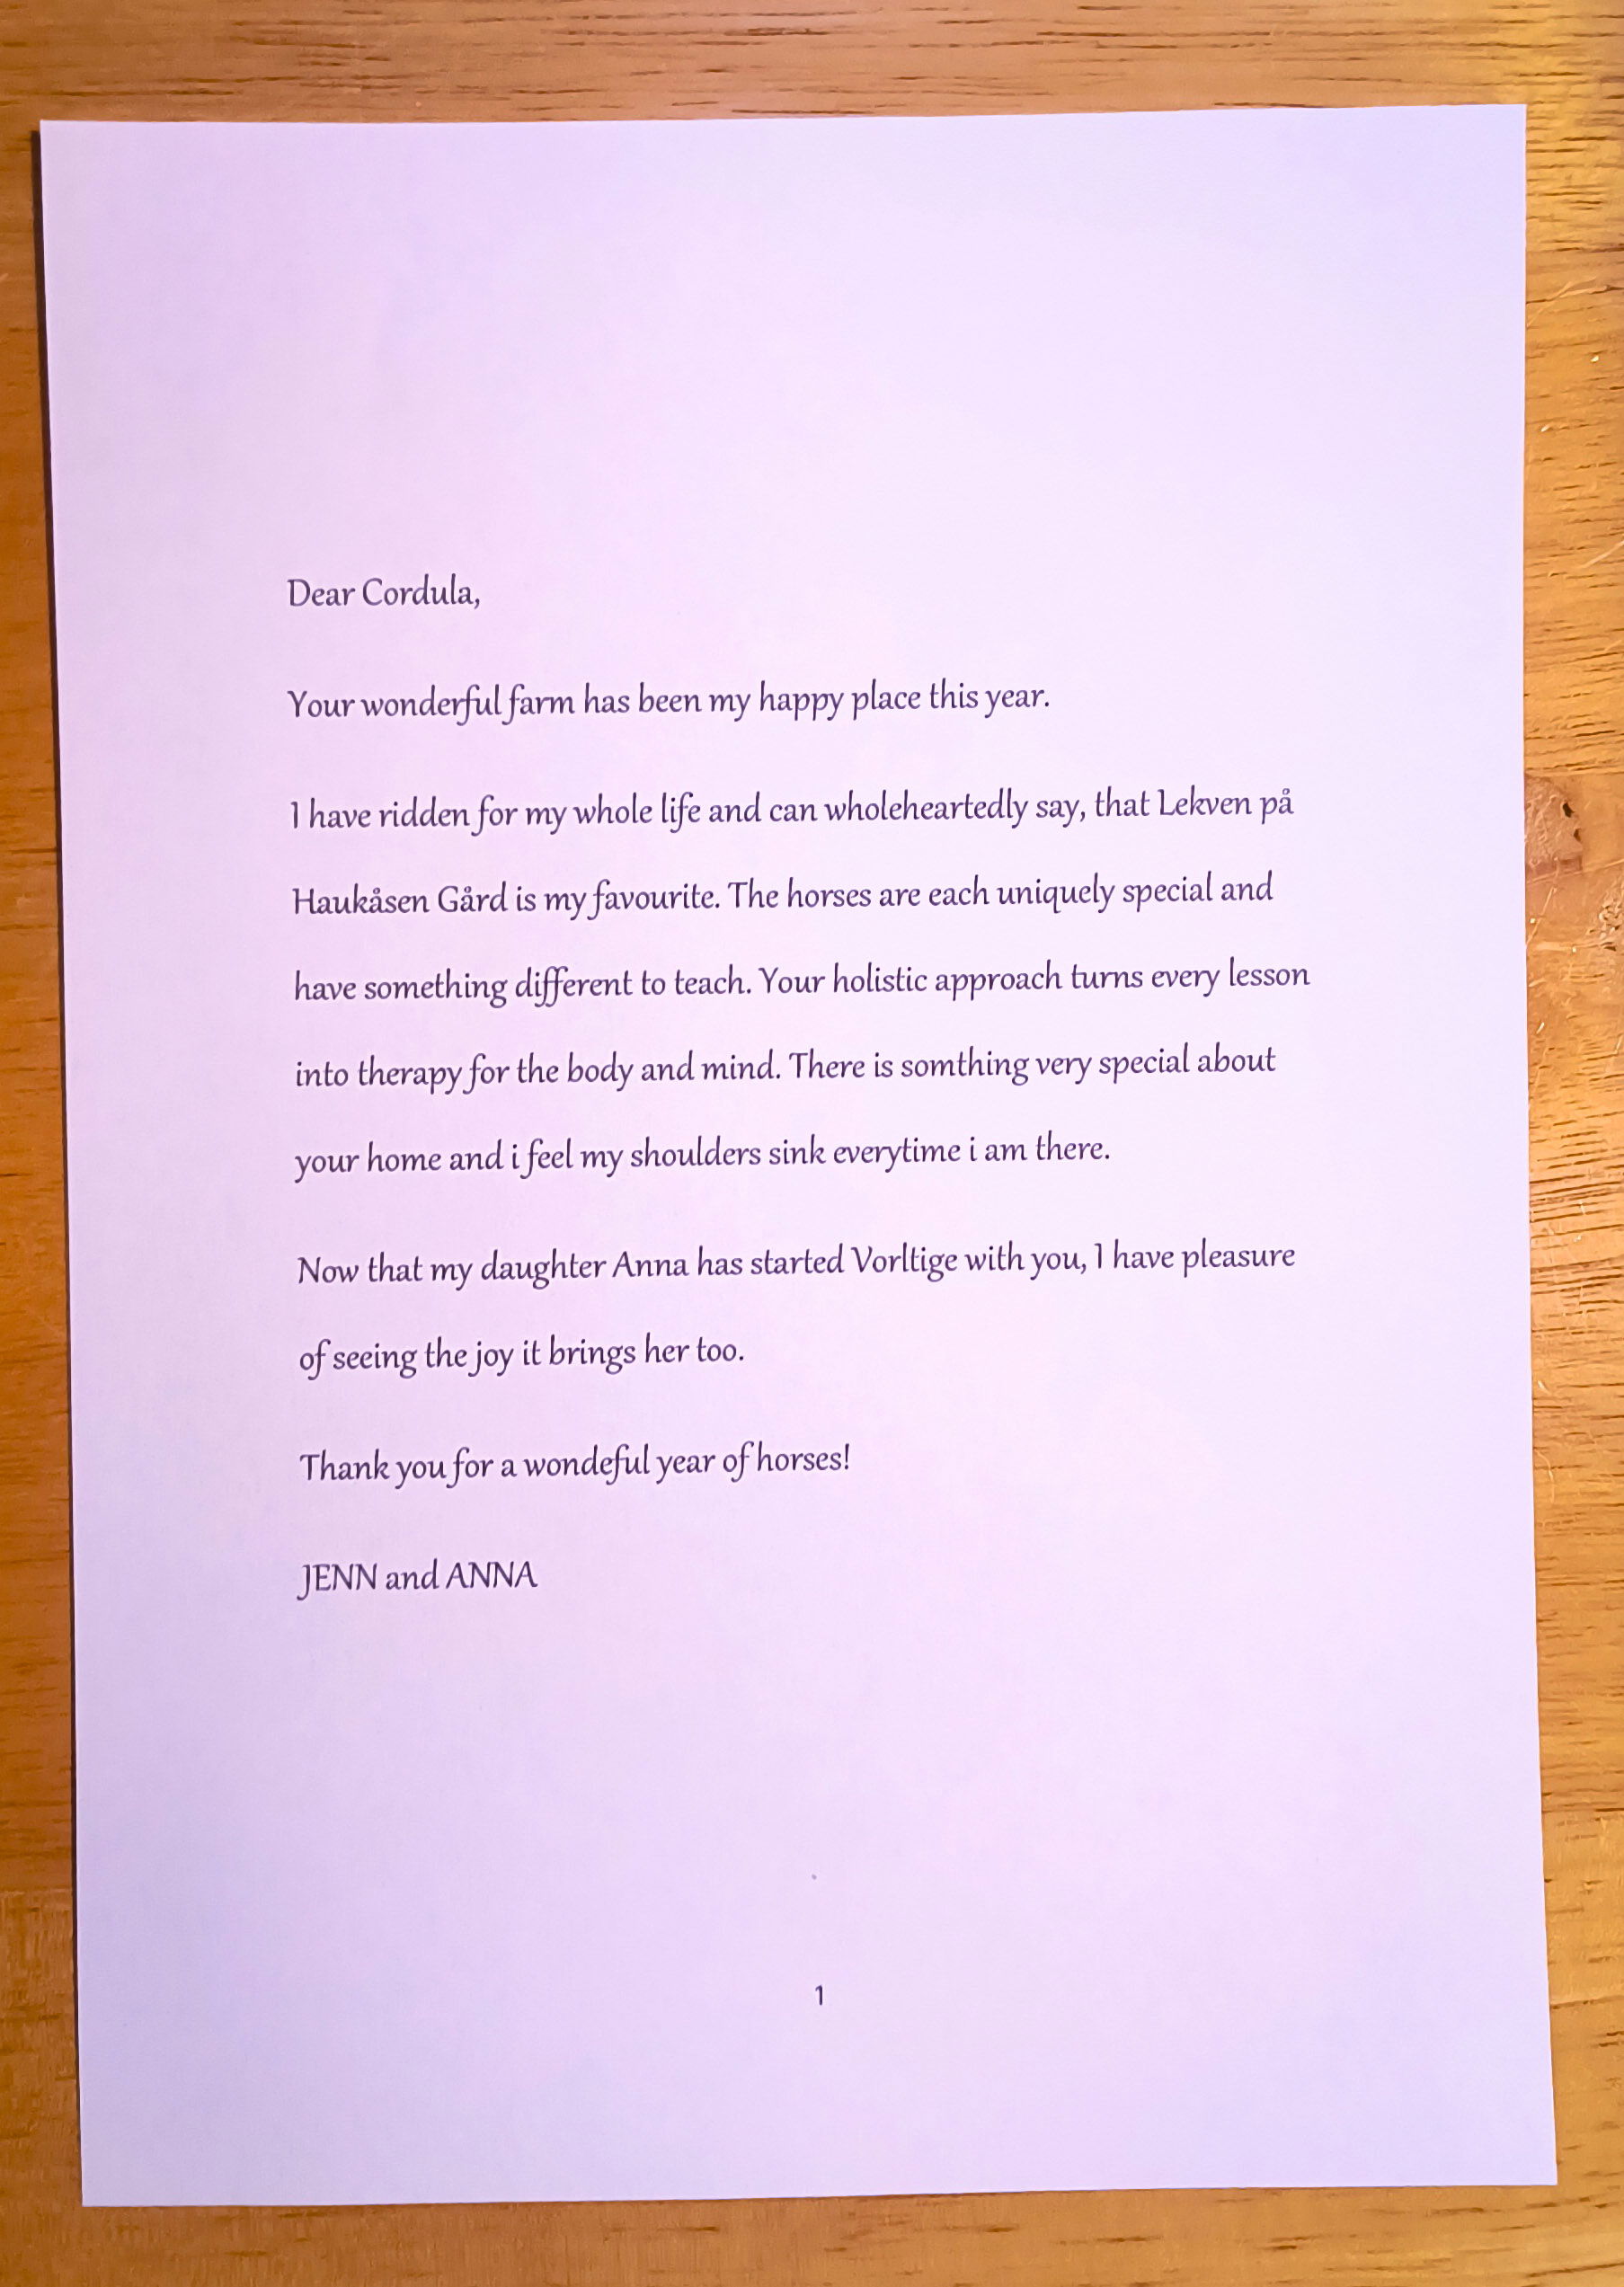 Dear Cordula,
Your wonderful farm has been my happy place this year.
I have ridden for my whole life and can wholeheartedly say, that Lekven på
Haukåsen Gård is my favourite. The horses are each uniquely special and
have something different to teach. Your holistic approach turns every lesson
into therapy for the body and mind. There is somthing very special about
your home and i feel my shoulders sink everytime i am there.
Now that my daughter Anna has started Vorltige with you, I have pleasure
of seeing the joy it brings her too.
Thank you for a wondeful year of horses!
JENN and ANNA
1